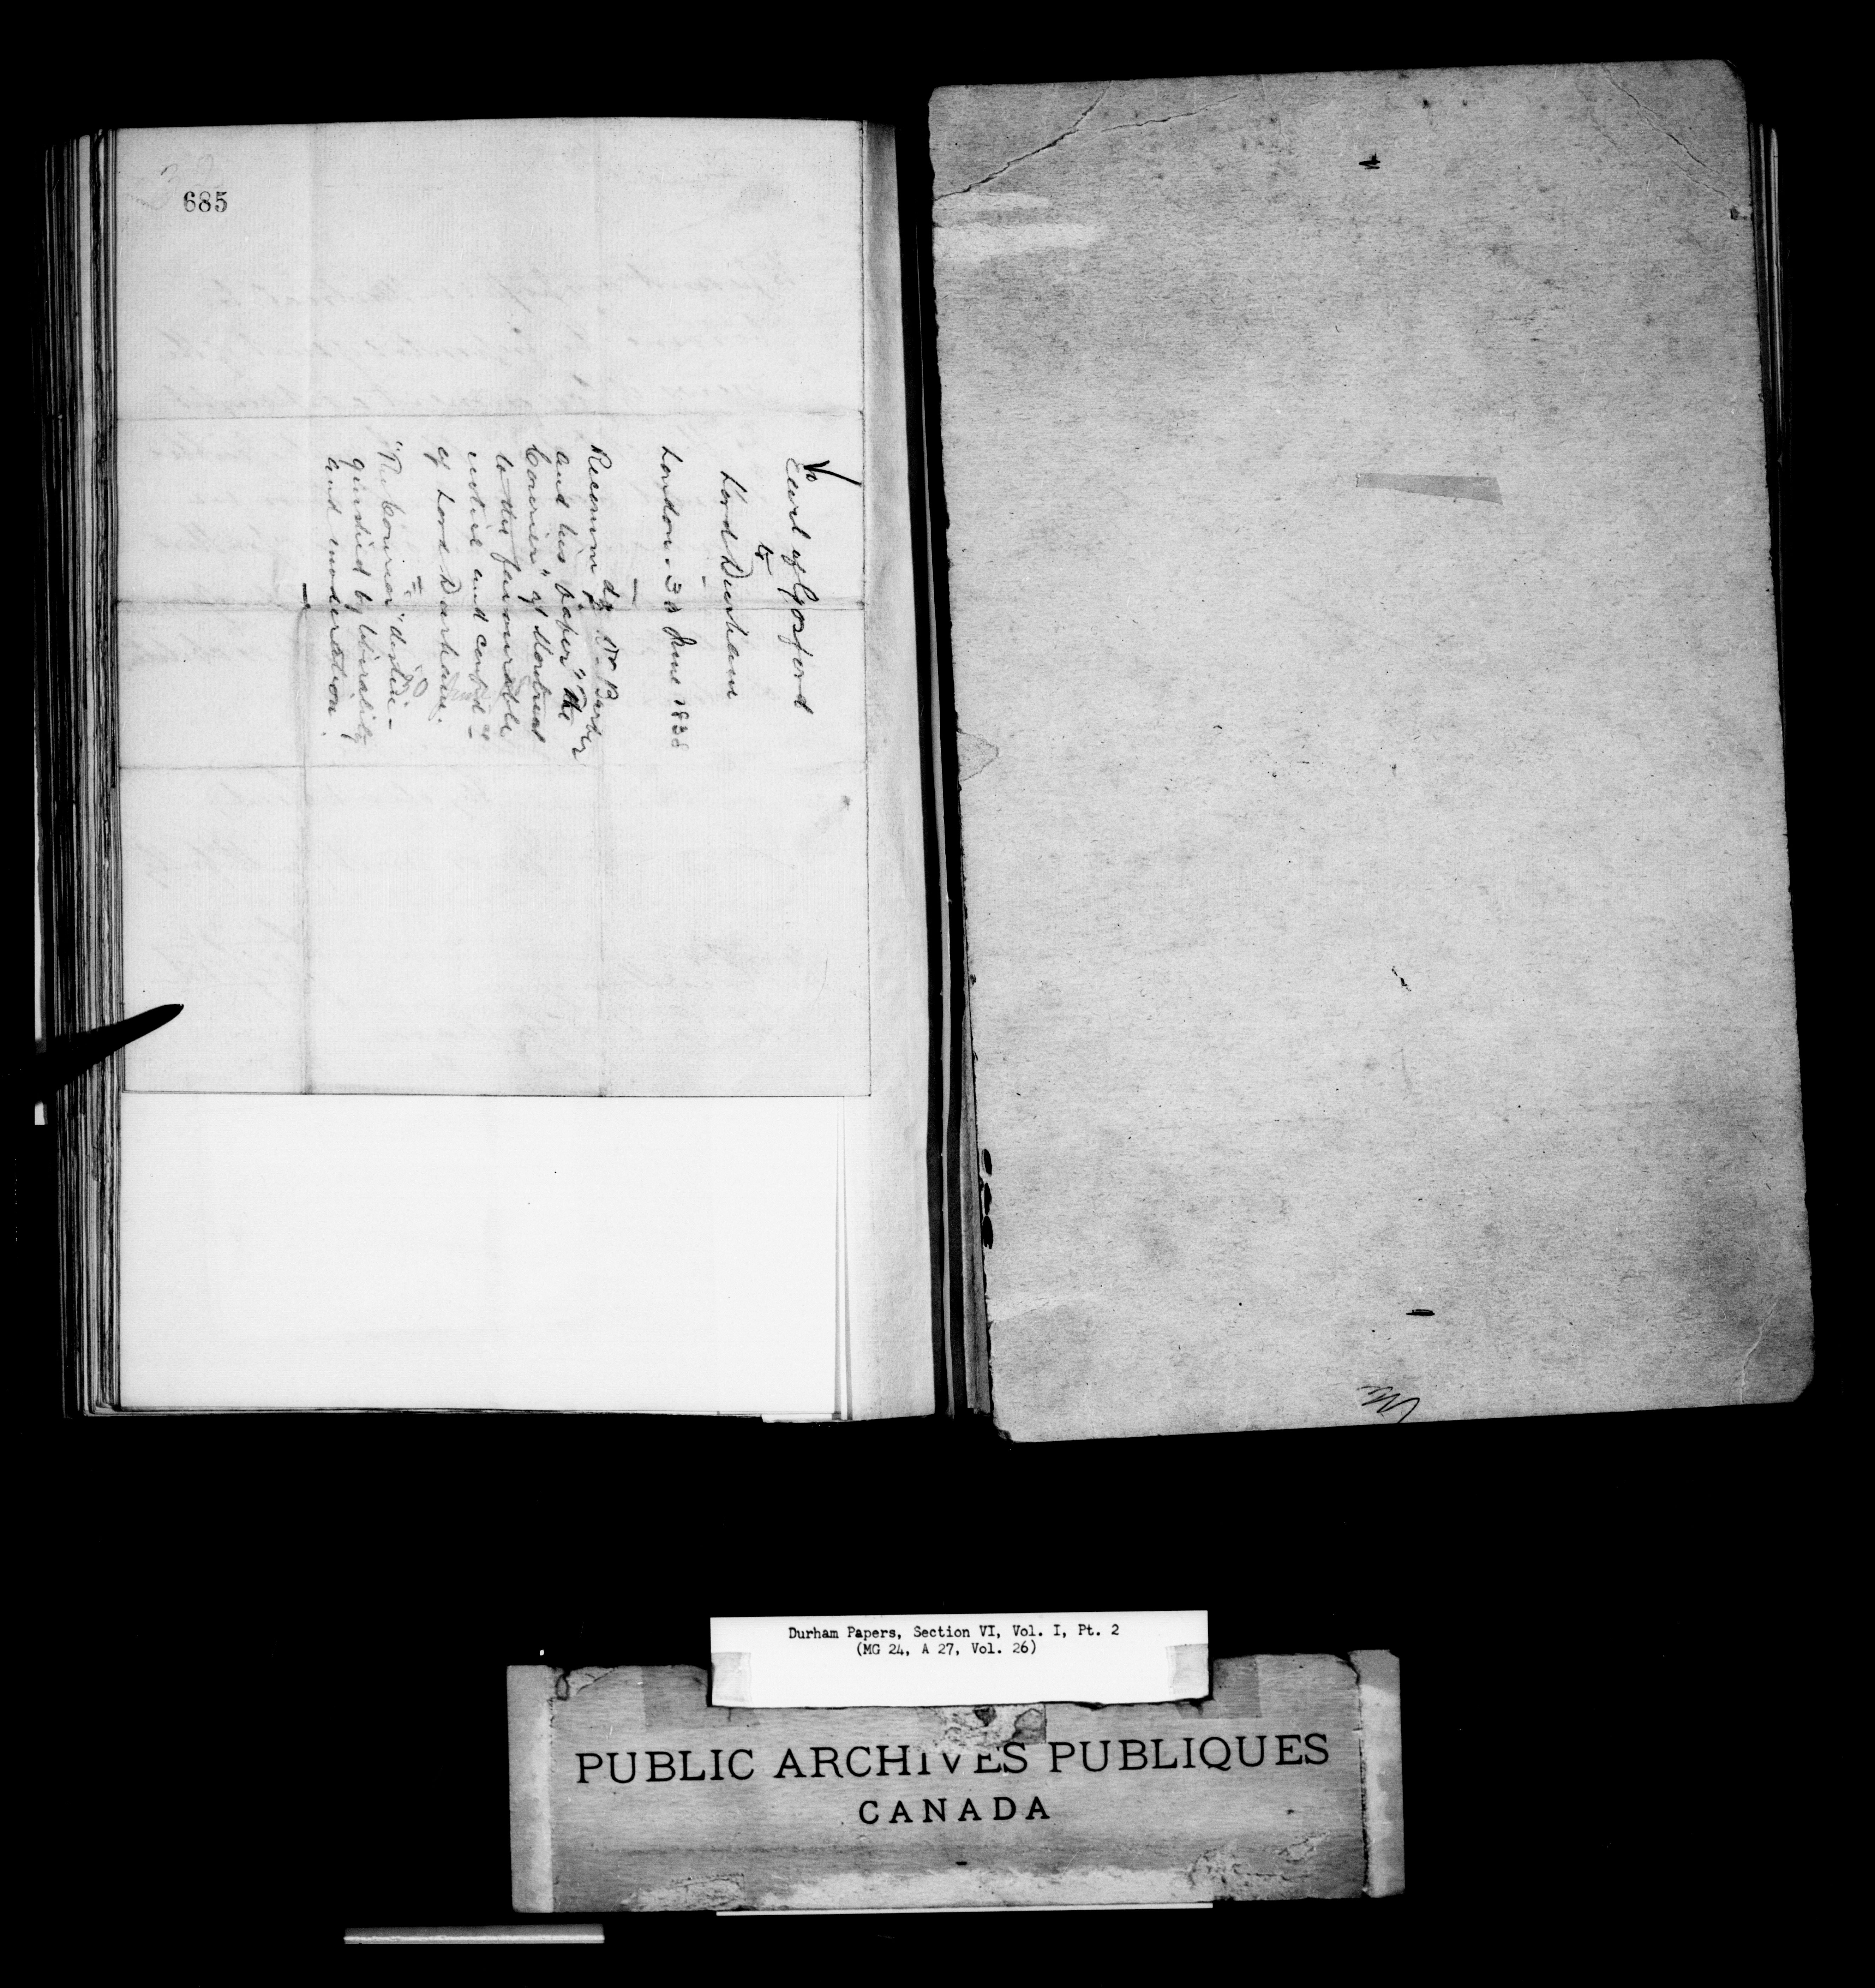 685
Earl of Gosford
to
Lord Durham
London. 30 June 1838
Recomm dg Dr Barber
and his paper, "The
Courier" of Montreal
to the favourable
notice and confid - ce
of Lord Durham.
"The Courier" distin-
guished by liberality
and moderation.
Durham Papers, Section VI, Vol. I, Pt. 2
(MG 24, A 27, Vol. 26)
PUBLIC ARCHIVES PUBLIQUES
CANADA